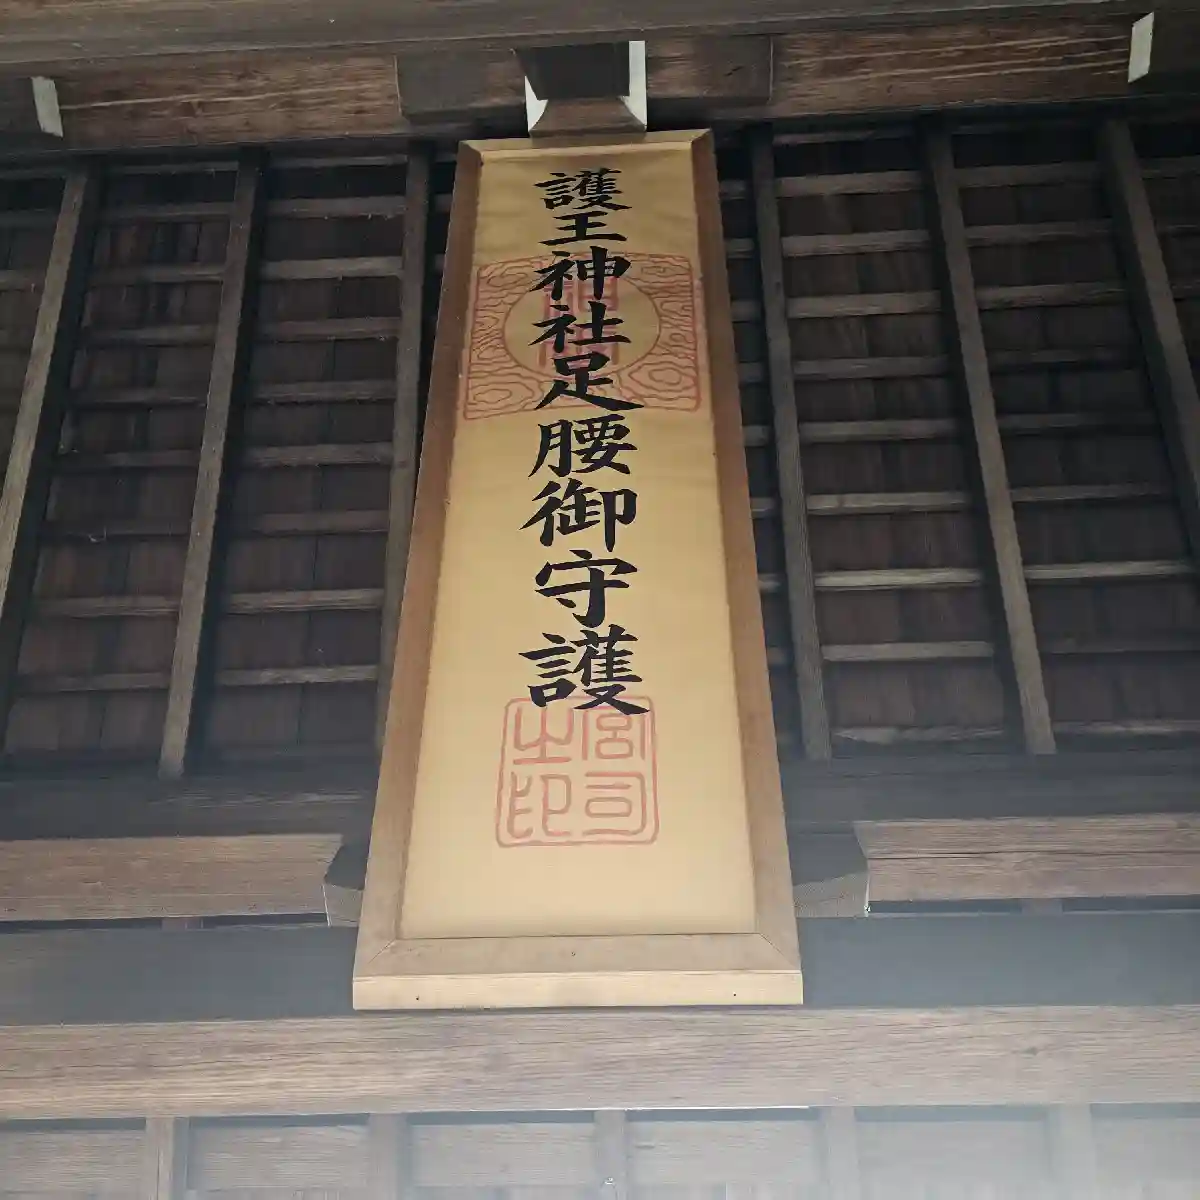 護王神社足腰御守護
宮司
之印